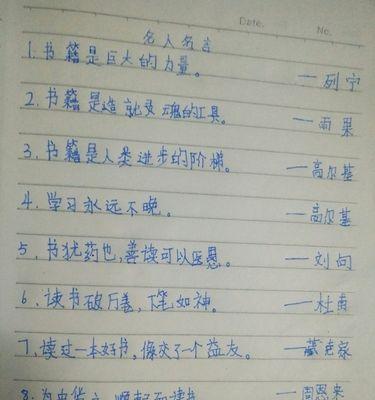 Date. No.
名人名言
1. 书籍是巨大的力量。 ——列宁
2. 书籍是造就灵魂的工具。 ——雨果
3. 书籍是人类进步的阶梯。 ——高尔基
4. 学习永远不晚。 ——高尔基
5. 书犹药也,善读可以医愚。 ——刘向
6. 读书破万卷,下笔如神。 ——杜甫
7. 读过一本好书,像交了一个益友。 ——臧克家
8. 为中华之 而读书 ——周恩来